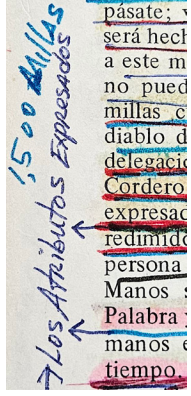 ,500 Millas
→ Los Atributos Expresados
pásate; v
será hech
a este m
no pued
millas c
diablo d
delegació
Cordero
expresad
redimido
persona
Manos s
Palabra v
manos e
tiempo.